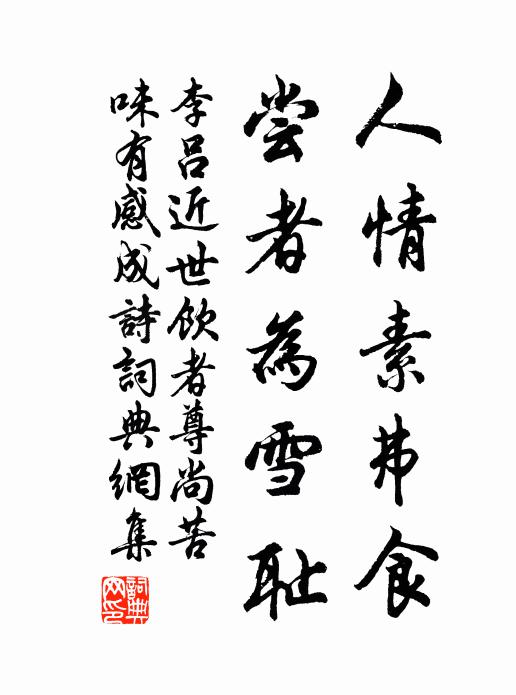 人情素弗食
尝者為雪耻
李吕近世飲者尊尚苦
味有感成詩詞典網集
詞典網印